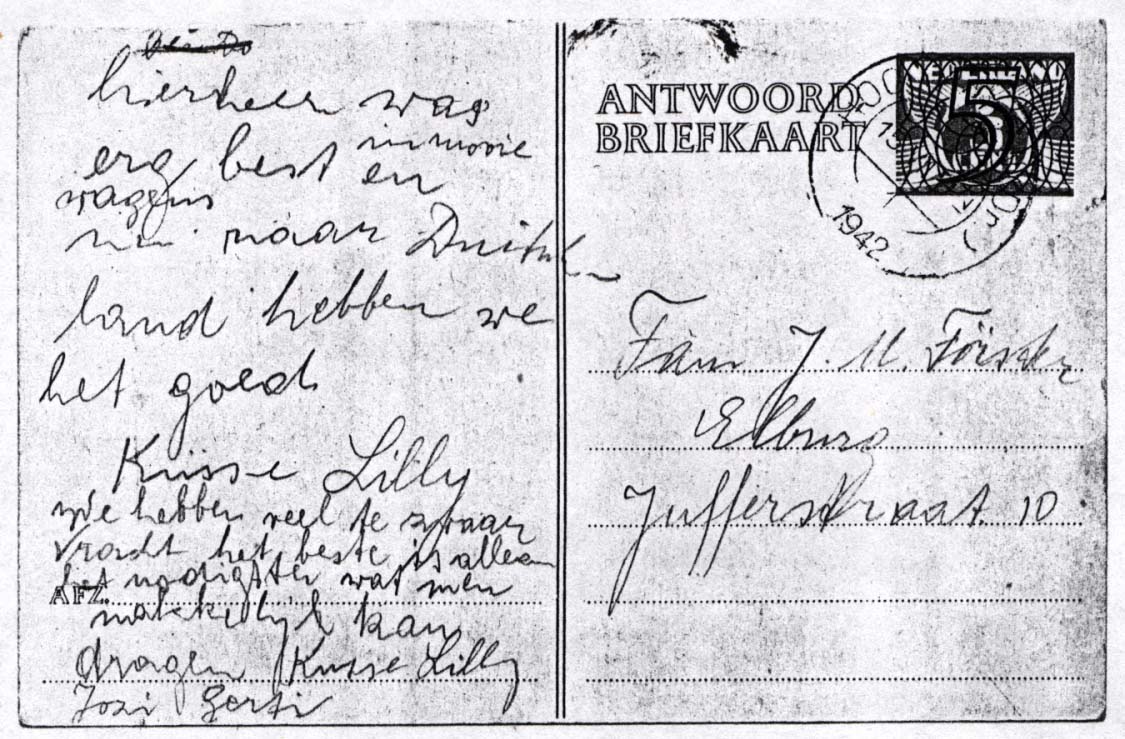 hierheen was
erg best in mooie
wagens en
naar Duitsch
land hebben we
het goed
Küsse Lilly
We hebben veel te zwaar
vracht het beste is alleen
het nodigste wat men
makkelijk kan
dragen Küsse Lilly
Gerti
AFZ.
ANTWOORD
BRIEFKAART
NEDERLAND
5
1942
Fam. J. M. Förster
Elburg
Jufferstraat 10